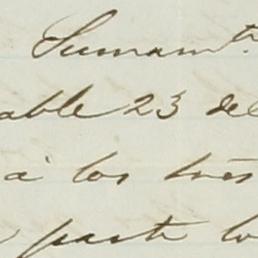 Sumamte.
able 23 del
á los tres
parte lo